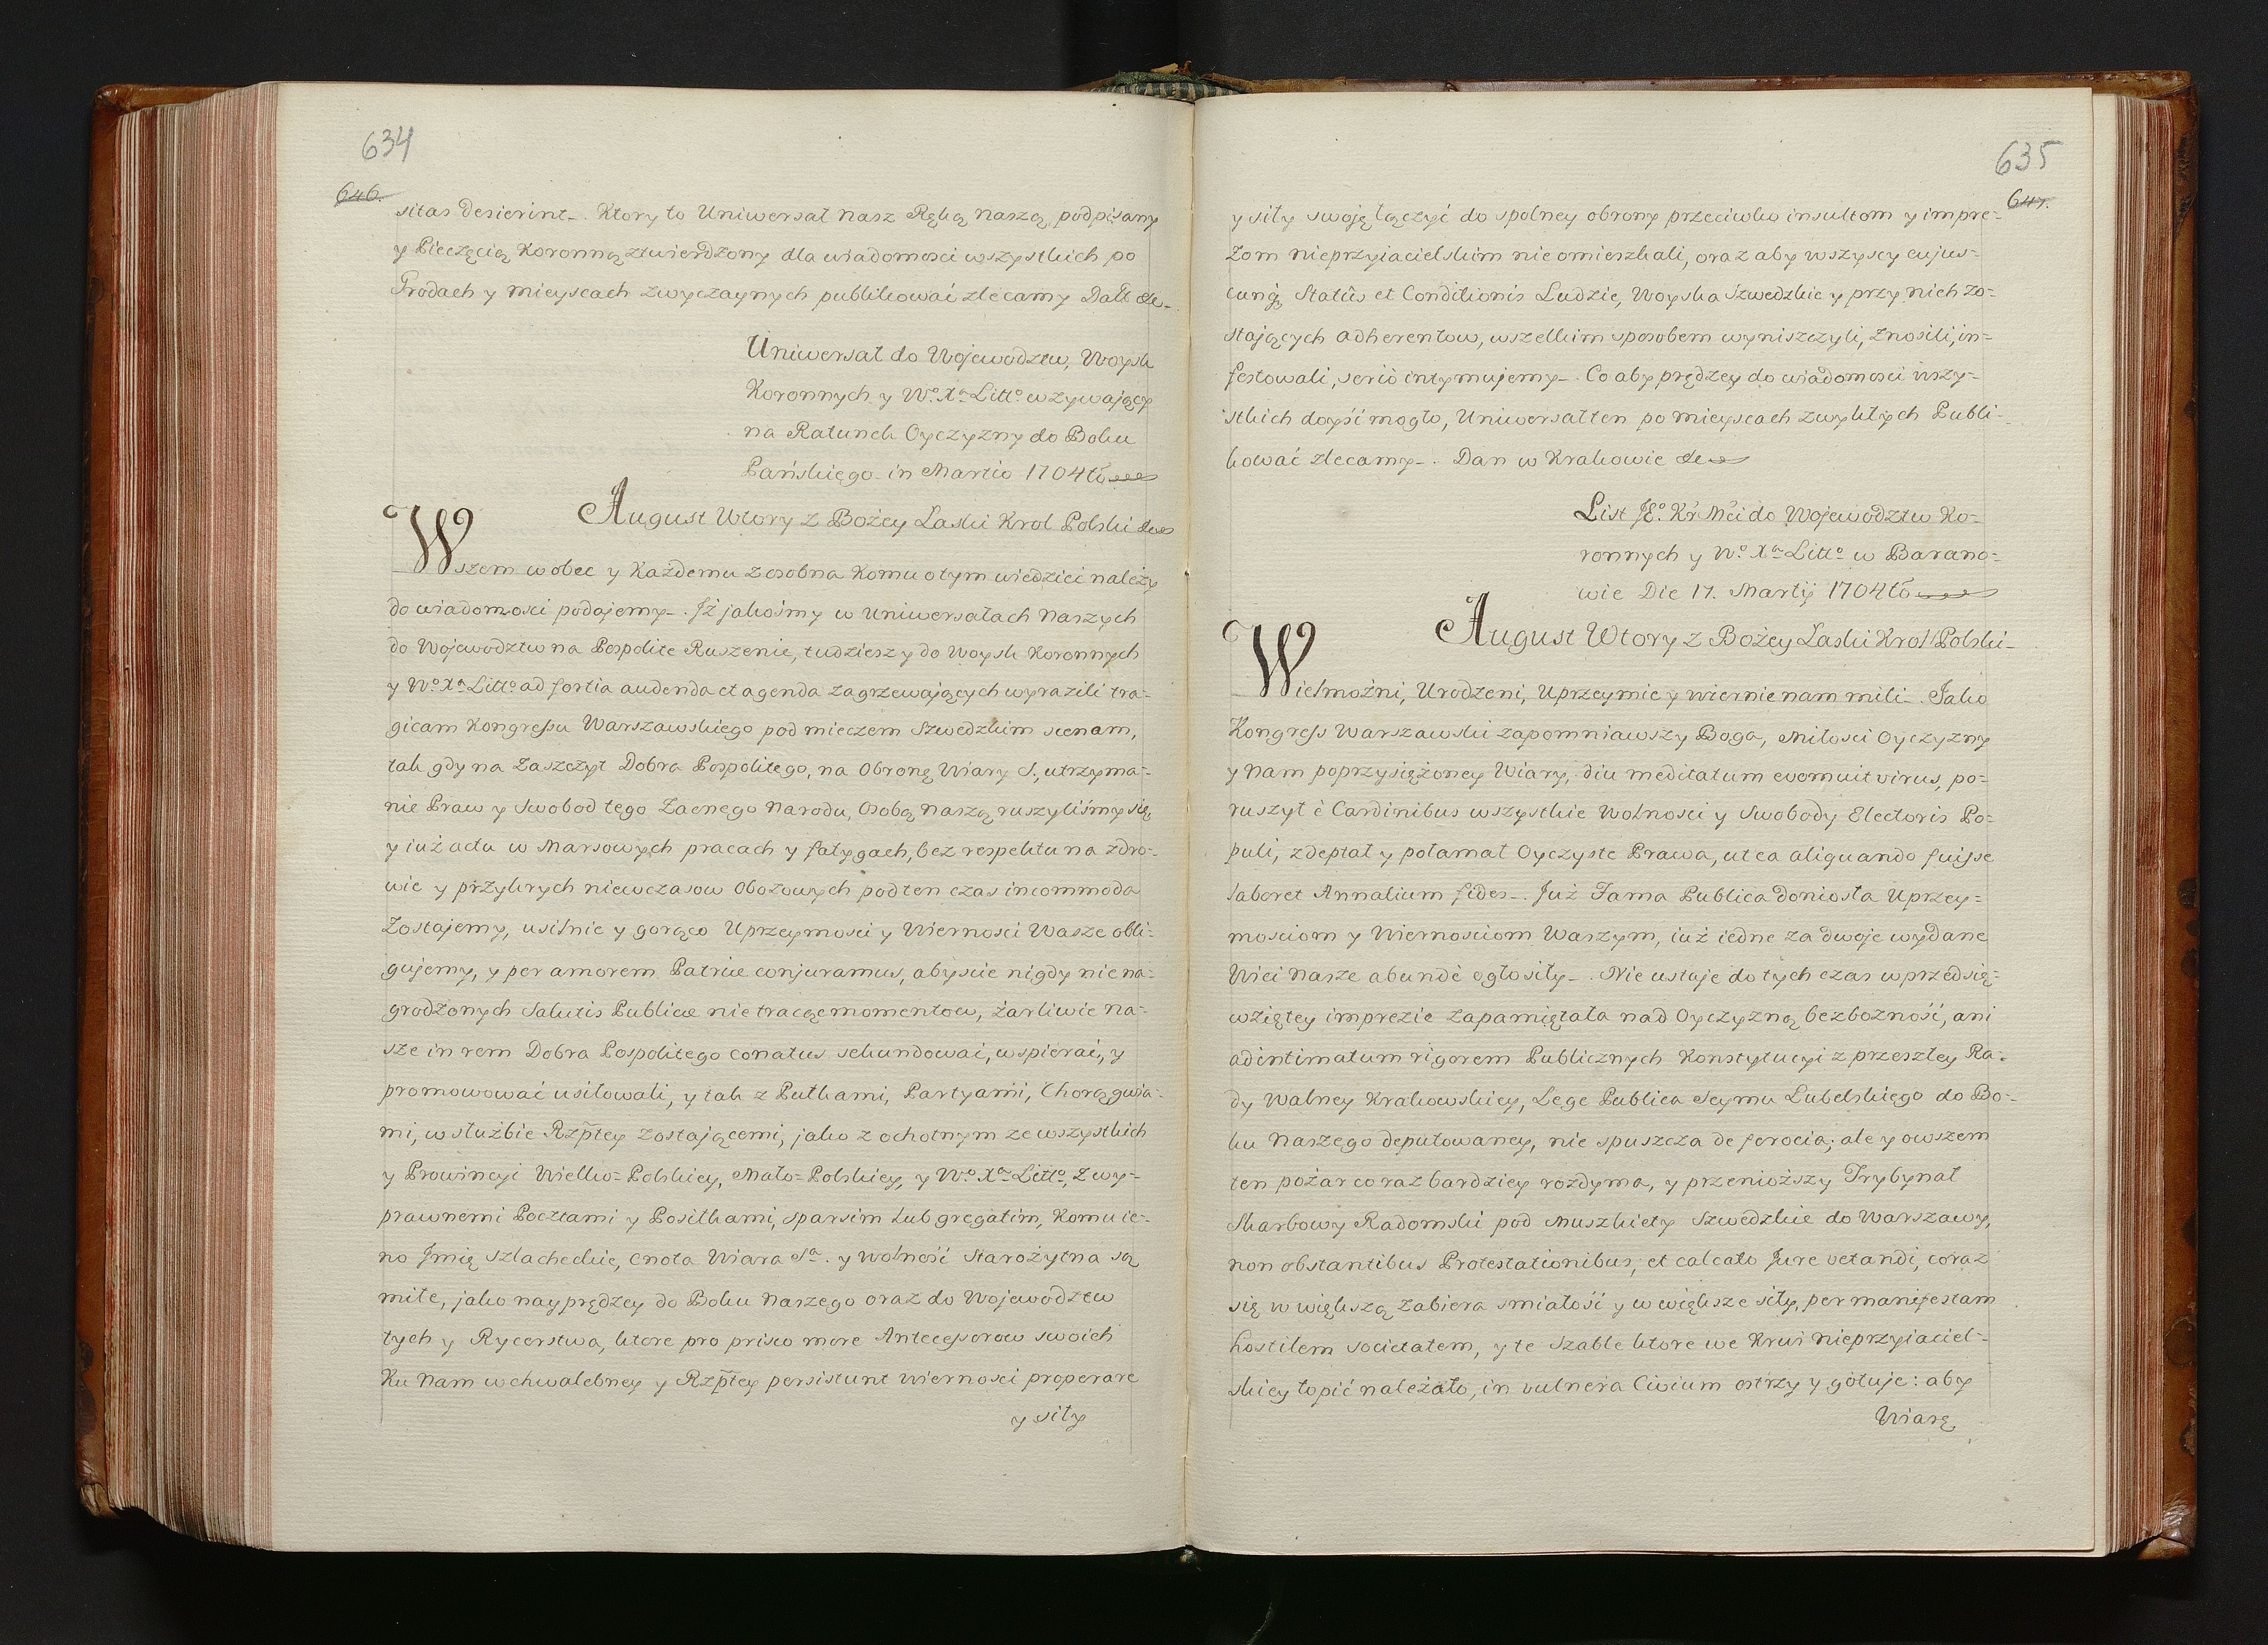 634
646.
sitas desierint_. Ktory to Uniwersał nasz Ręką naszą podpisany
y Pieczęcią Koronną ztwierdzony dla wiadomosci wszystkich po
Grodach y mieyscach zwyczaynych publikować zlecamy Datt &c_
Uniwersał do Wojewodztw, Woysk
Koronnych y Wº. Xª Littº. wzywający
na Ratunek Oyczyzny do Boku
Pańskiego in Martio 1704to
August Wtory z Bożey Łaski Krol Polski &c
Wszem wobec y Każdemu zosobna Komu otym wiedzieć należy
do wiadomosci podajemy_. Jż jakośmy w Uniwersałach Naszych
do Wojewodztw na Pospolite Ruszenie, tudziesz y do Woysk Koronnych
y Wº. Xª Littº ad fortia audenda et agenda zagrzewających wyrazili tra-
gicam Kongressu Warszawskiego pod mieczem Szwedzkim scenam,
tak gdy na Zaszczyt Dobra Pospolitego, na Obronę Wiary S., utrzyma-
nie Praw y Swobod tego Zacnego Narodu, Osobą Naszą ruszyliśmy się,
y iuż actu w Marsowych pracach y fatygach, bez respektu na zdro-
wie y przykrych niewczasow Obozowych podten czas incommoda
Zostajemy, usilnie y gorąco Uprzeymosci y Wiernosci Wasze obli-
gujemy, y per amorem Patriæ conjuramus, abyscie nigdy niena-
grodzonych Salutis Publicæ nie tracąc momentow, żarliwie na-
sze in rem Dobra Pospolitego conatus sekundować, wspierać, y
promowować usiłowali, y tak z Pułkami, Partyami, Chorągwia-
mi, w służbie Rzptey zostającemi, jako z ochotnym ze wszystkich
y Prowincyi Wielko=Polskiey, Mało=Polskiey, y Wº. Xª Littº, z wy-
prawnemi Pocztami y Posiłkami, sparsim lub gregatim, Komu ie-
no Jmię Szlacheckie, cnota Wiara Sª. y Wolność Starożytna są
miłe, jako nayprędzey do Boku Naszego oraz do Wojewodztw
tych y Rycerstwa, ktore pro prisco more Antecessorow swoich
Ku Nam w chwalebney y Rzptey persistunt wiernosci properare
y siły
635
647.
y siły swoję łączyć do spolney obrony przeciwko insultom y impre-
zom nieprzyiacielskim nieomieszkali, oraz aby wszyscy cujus-
cunq Statûs et Conditionis Ludzie, Woyska Szwedzkie y przy nich zo-
stających adherentow, wszelkim sposobem wyniszczyli, znosili, in-
festowali, seriò intymujemy_. Co aby prędzey do wiadomosci wszy-
stkich doyść mogło, Uniwersał ten po mieyscach zwykłych Publi-
kować zlecamy_. Dan w Krakowie &c
List JEº. Kr Mci do Wojewodztw Ko-
ronnych y Wº Xª Littº w Barano=
wie Die 17. Martij 1704to
August Wtory z Bożey Łaski Krol Polski_
Wielmożni, Urodzeni, Uprzeymie y wiernie nam mili_. Jako
Kongress Warszawski zapomniawszy Boga, Miłosci Oyczyzny
y Nam poprzysiężoney Wiary, diu meditatum evomuit virus, po-
ruszył è Cardinibus wszystkie Wolnosci y Swobody Electoris Po-
puli, zdeptał y połamał Oyczyste Prawa, ut ea aliquando fuisse
laboret Annalium fides_. Już Fama Publica doniosła Uprzey-
mosciom y Wiernosciom Waszym, iuż iedne za dwoje wydane
Wici Nasze abundè ogłosiły_. Nie ustaje do tych czas w przedsię-
wziętey imprezie zapamiętała nad Oyczyzną bezbozność, ani
ad intimatum rigorem Publicznych Konstytucyi z przeszłey Ra-
dy Walney Krakowskiey, Lege Publica Seymu Lubelskiego do Bo-
ku Naszego deputowaney, nie spuszcza de ferocia; ale y owszem
ten pożar coraz bardziey rozdyma, y przeniozszy Trybynał
Skarbowy Radomski pod Muszkiety Szwedzkie do Warszawy,
non obstantibus Protestationibus, et calcato Jure vetandi, coraz
się w większą zabiera smiałość y w większe siły, per manifestam
hostilem societatem, y te Szable ktore we Krwi nieprzyiaciel-
skiey topić należało, in vulnera Civium ostrzy y gotuje: aby
Wiarę